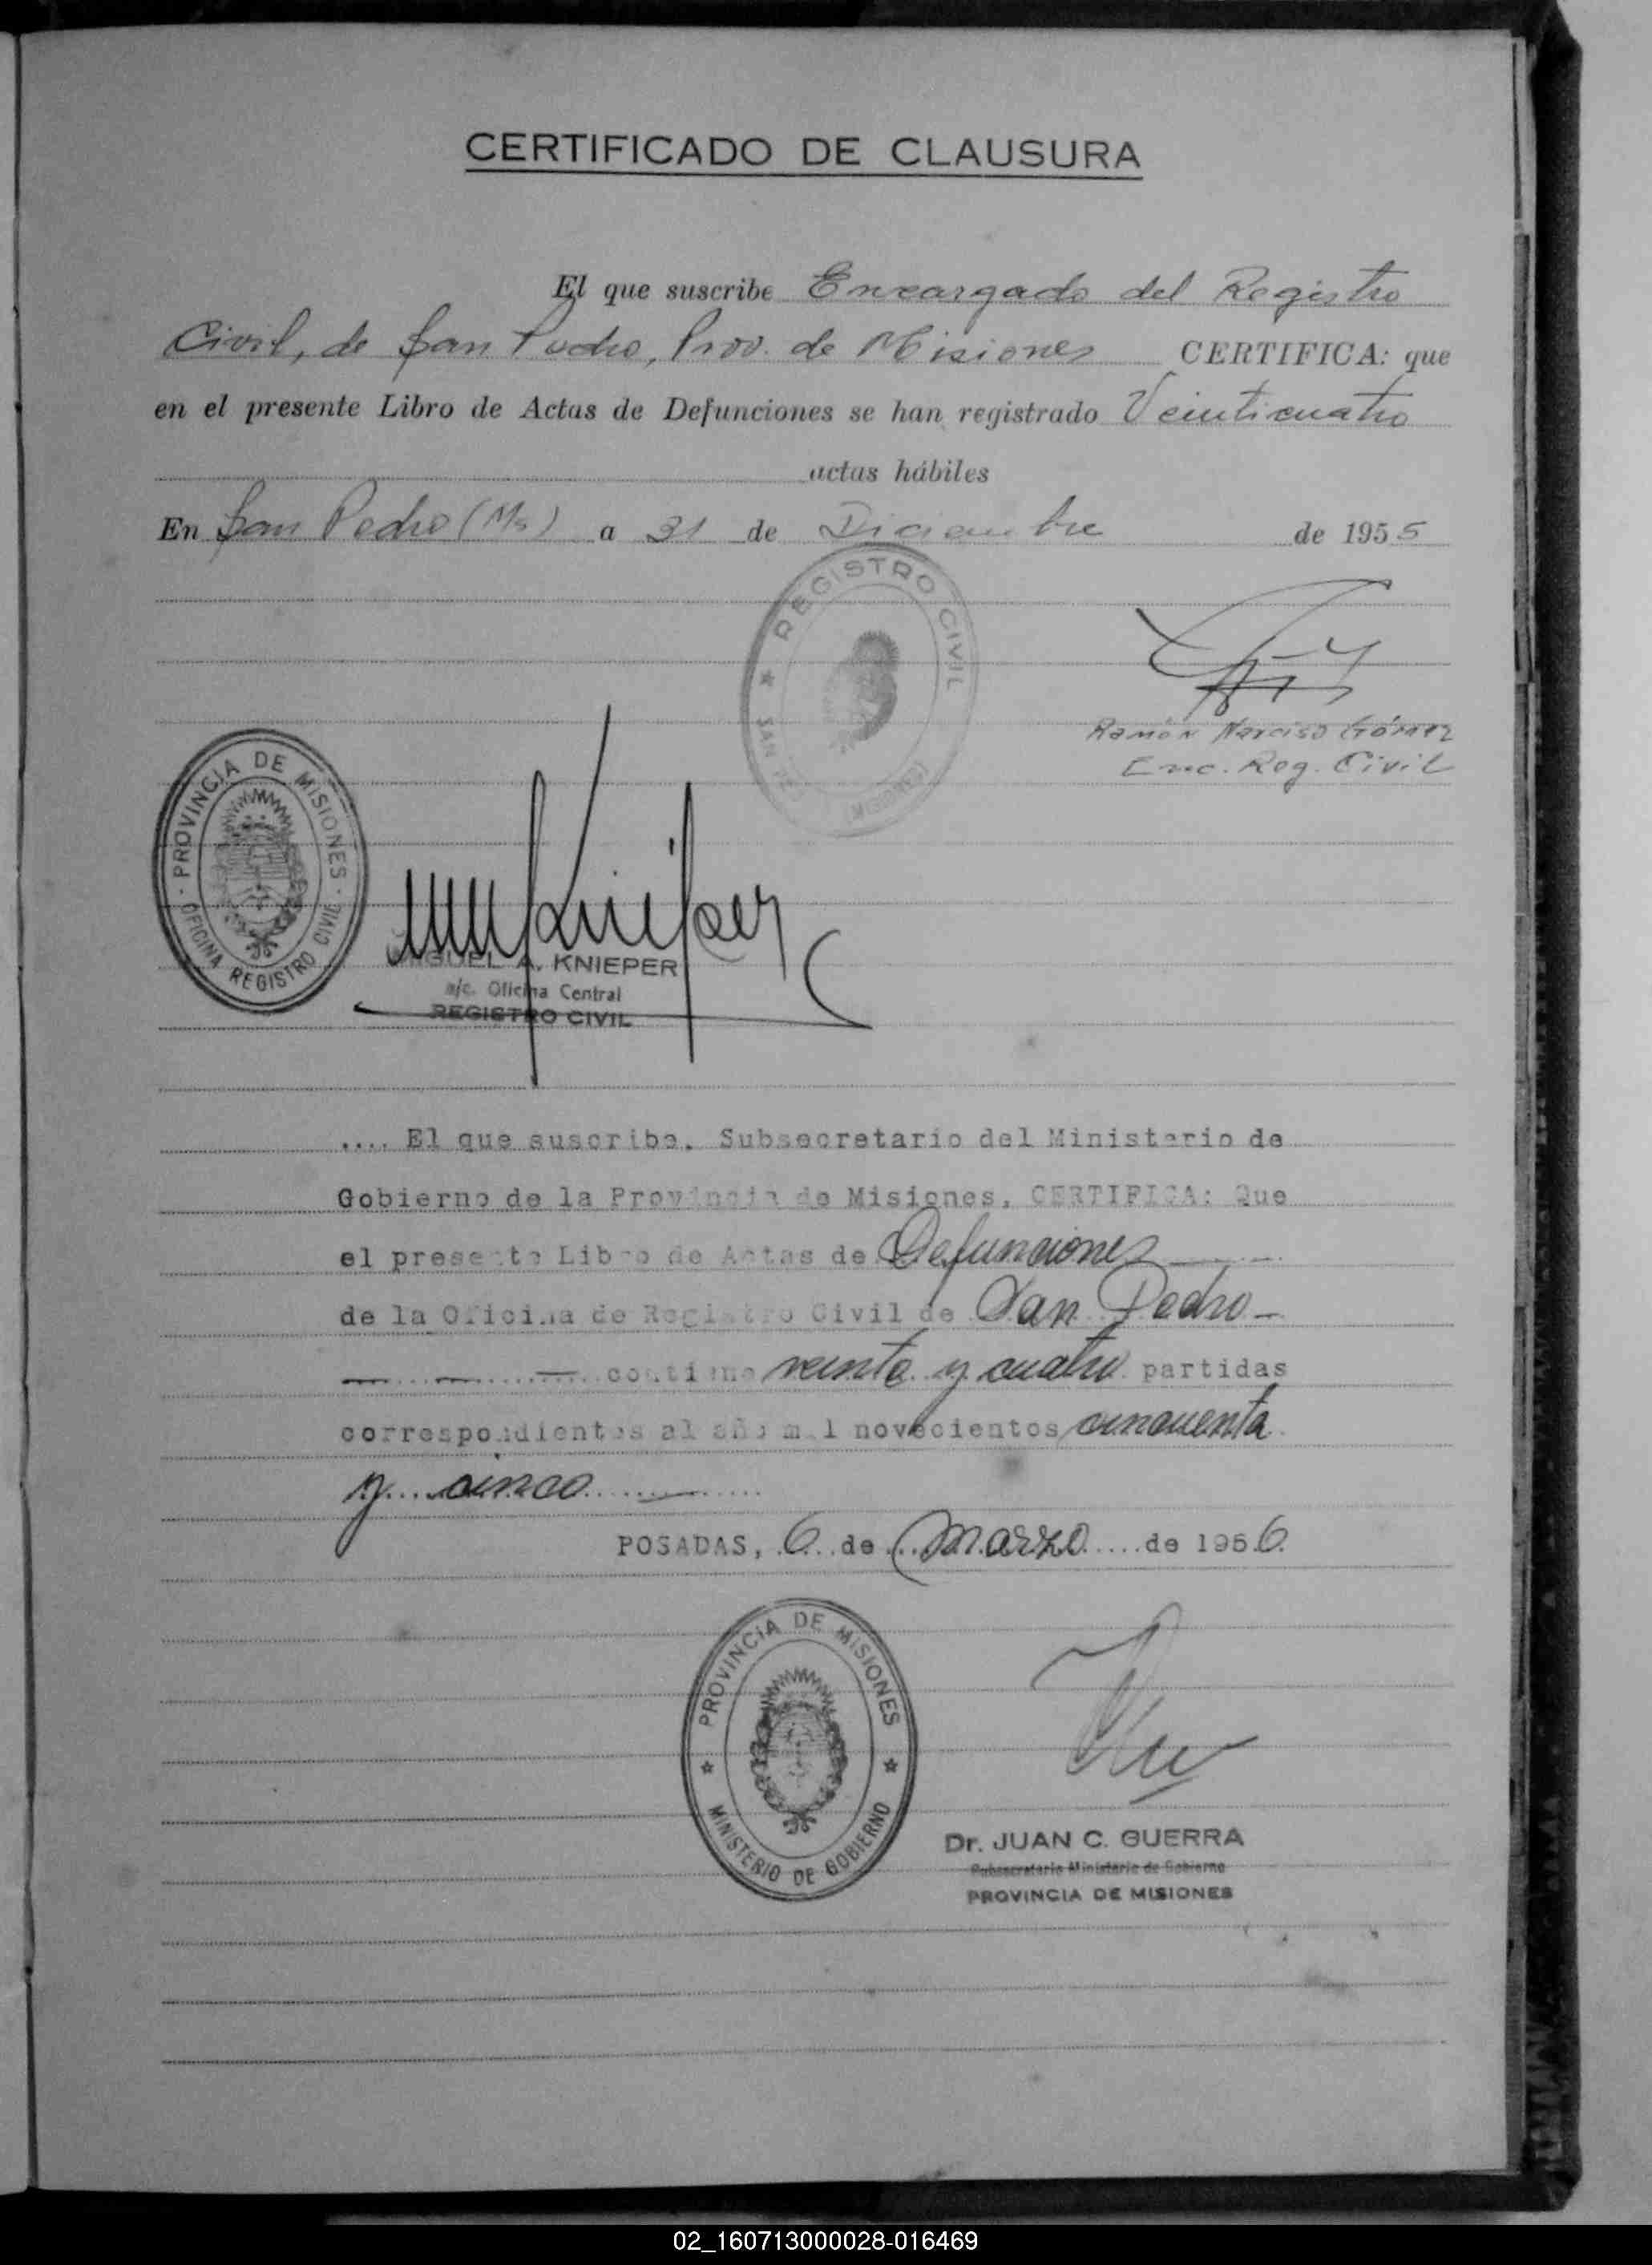 CERTIFICADO DE CLAUSURA
El que suscribe Encargado del Registro
Civil, de San Pedro, Prov. de Misiones CERTIFICA: que
en el presente Libro de Actas de Defunciones se han registrado Veinticuatro
actas hábiles
En San Pedro (Ms) a 31 de Diciembre de 1955
REGISTRO CIVIL
SAN
MISIONES
Ramón Narciso Gómez
Enc. Reg. Civil
PROVINCIA DE MISIONES
OFICINA REGISTRO CIVIL
MIGUEL A. KNIEPER
a/c. Oficina Central
REGISTRO CIVIL
.... El que suscribe, Subsecretario del Ministerio de
Gobierno de la Provincia de Misiones, CERTIFICA: Que
el presente Libro de Actas de Defunciones
de la Oficina de Registro Civil de San Pedro-
contiene veinte y cuatro partidas
correspondientes al año mil novecientos cincuenta
y cinco
POSADAS, 6 de Marzo de 1956.
PROVINCIA DE MISIONES
MINISTERIO DE GOBIERNO
Dr. JUAN C. GUERRA
Subsecretario Ministerio de Gobierno
PROVINCIA DE MISIONES
02_160713000028-016469